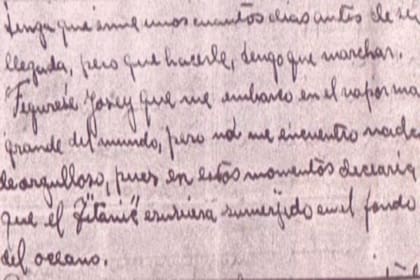 tenga que irme unos cuantos días antes de su
llegada, pero que hacerle, tengo que marchar.
Figurese Josey que me embarco en el vapor ma
grande del mundo, pero no me encuentro nada
de orgulloso, pues en estos momentos desearía
que el "Titanic" estuviera sumerjido en el fondo
del oceano.